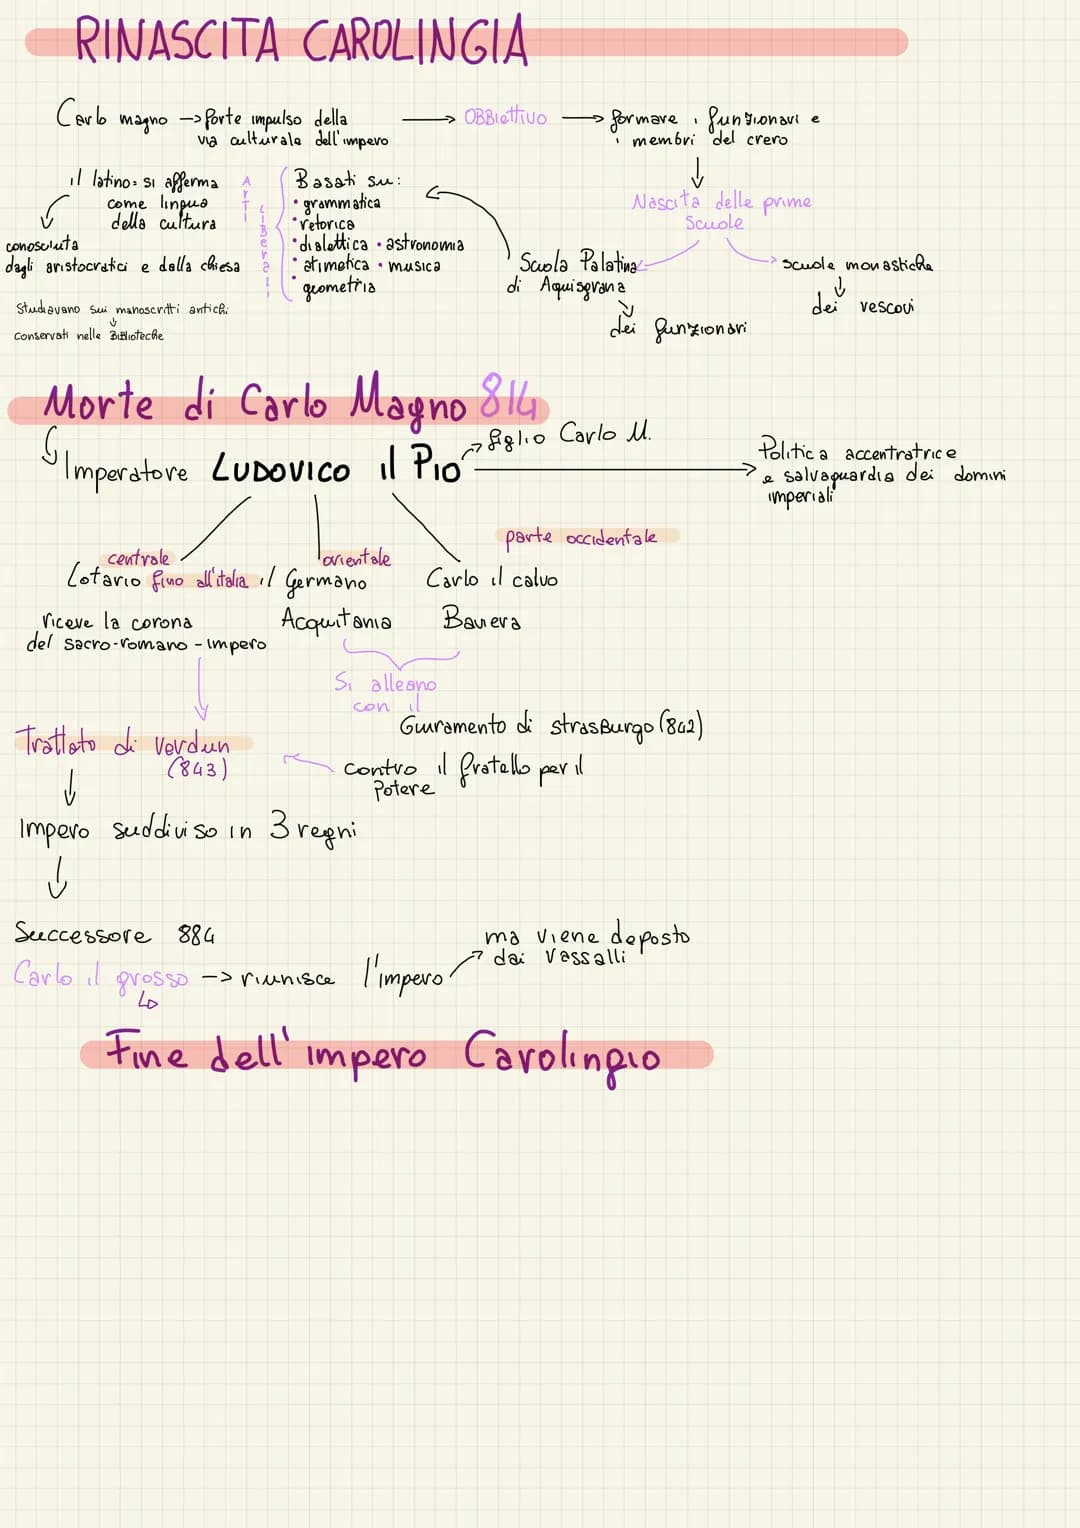 RINASCITA CAROLINGIA
Carlo magno -> forte impulso della
via culturale dell'impero
-> OBBiettivo -> formare i funzionari e
i membri del crero
Nascita delle prime
Scuole
Scuola Palatina
di Aquisgrana
dei funzionari
-> scuole monastiche
dei vescovi
Basati su:
• grammatica
• retorica
• dialettica • astronomia
• atimetica • musica
• geometria
ARTI
LIBerali
il latino: si afferma
come lingua
della cultura
conosciuta
dagli aristocratici e dalla chiesa
Studiavano sui manoscritti antichi
conservati nelle BiBlioteche
Morte di Carlo Magno 814
Imperatore LUDOVICO il PIO
-> figlio Carlo M.
Politica accentratrice
e salvaguardia dei domini
imperiali
centrale
Lotario fino all'italia
orientale
il Germano
parte occidentale
Carlo il calvo
riceve la corona
del sacro-romano-impero
Acquitania
Baviera
Si alleano
con il
Giuramento di strasBurgo (842)
contro il fratello per il
Potere
Trattato di Verdun
(843)
Impero suddiviso in 3 regni
Successore 884
Carlo il grosso -> riunisce l'impero
ma viene deposto
dai vassalli
Fine dell'impero Carolingio